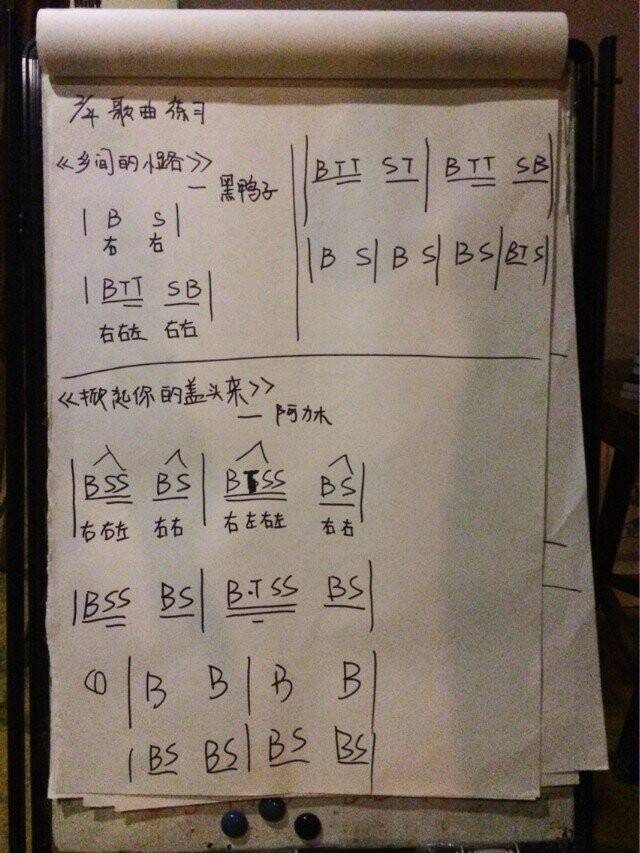 2/4 歌曲练习
《乡间的小路》
— 黑鸭子
| B S |
右 右
| BTT SB |
右右左 右右
| BTT ST | BTT SB |
| B S | B S | B S | BTS |
《掀起你的盖头来》
— 阿力木
| BSS BS | BTSS BS |
右右左 右右 右左右左 右右
| BSS BS | B.T SS BS |
① | B B | B B |
| BS BS | BS BS |